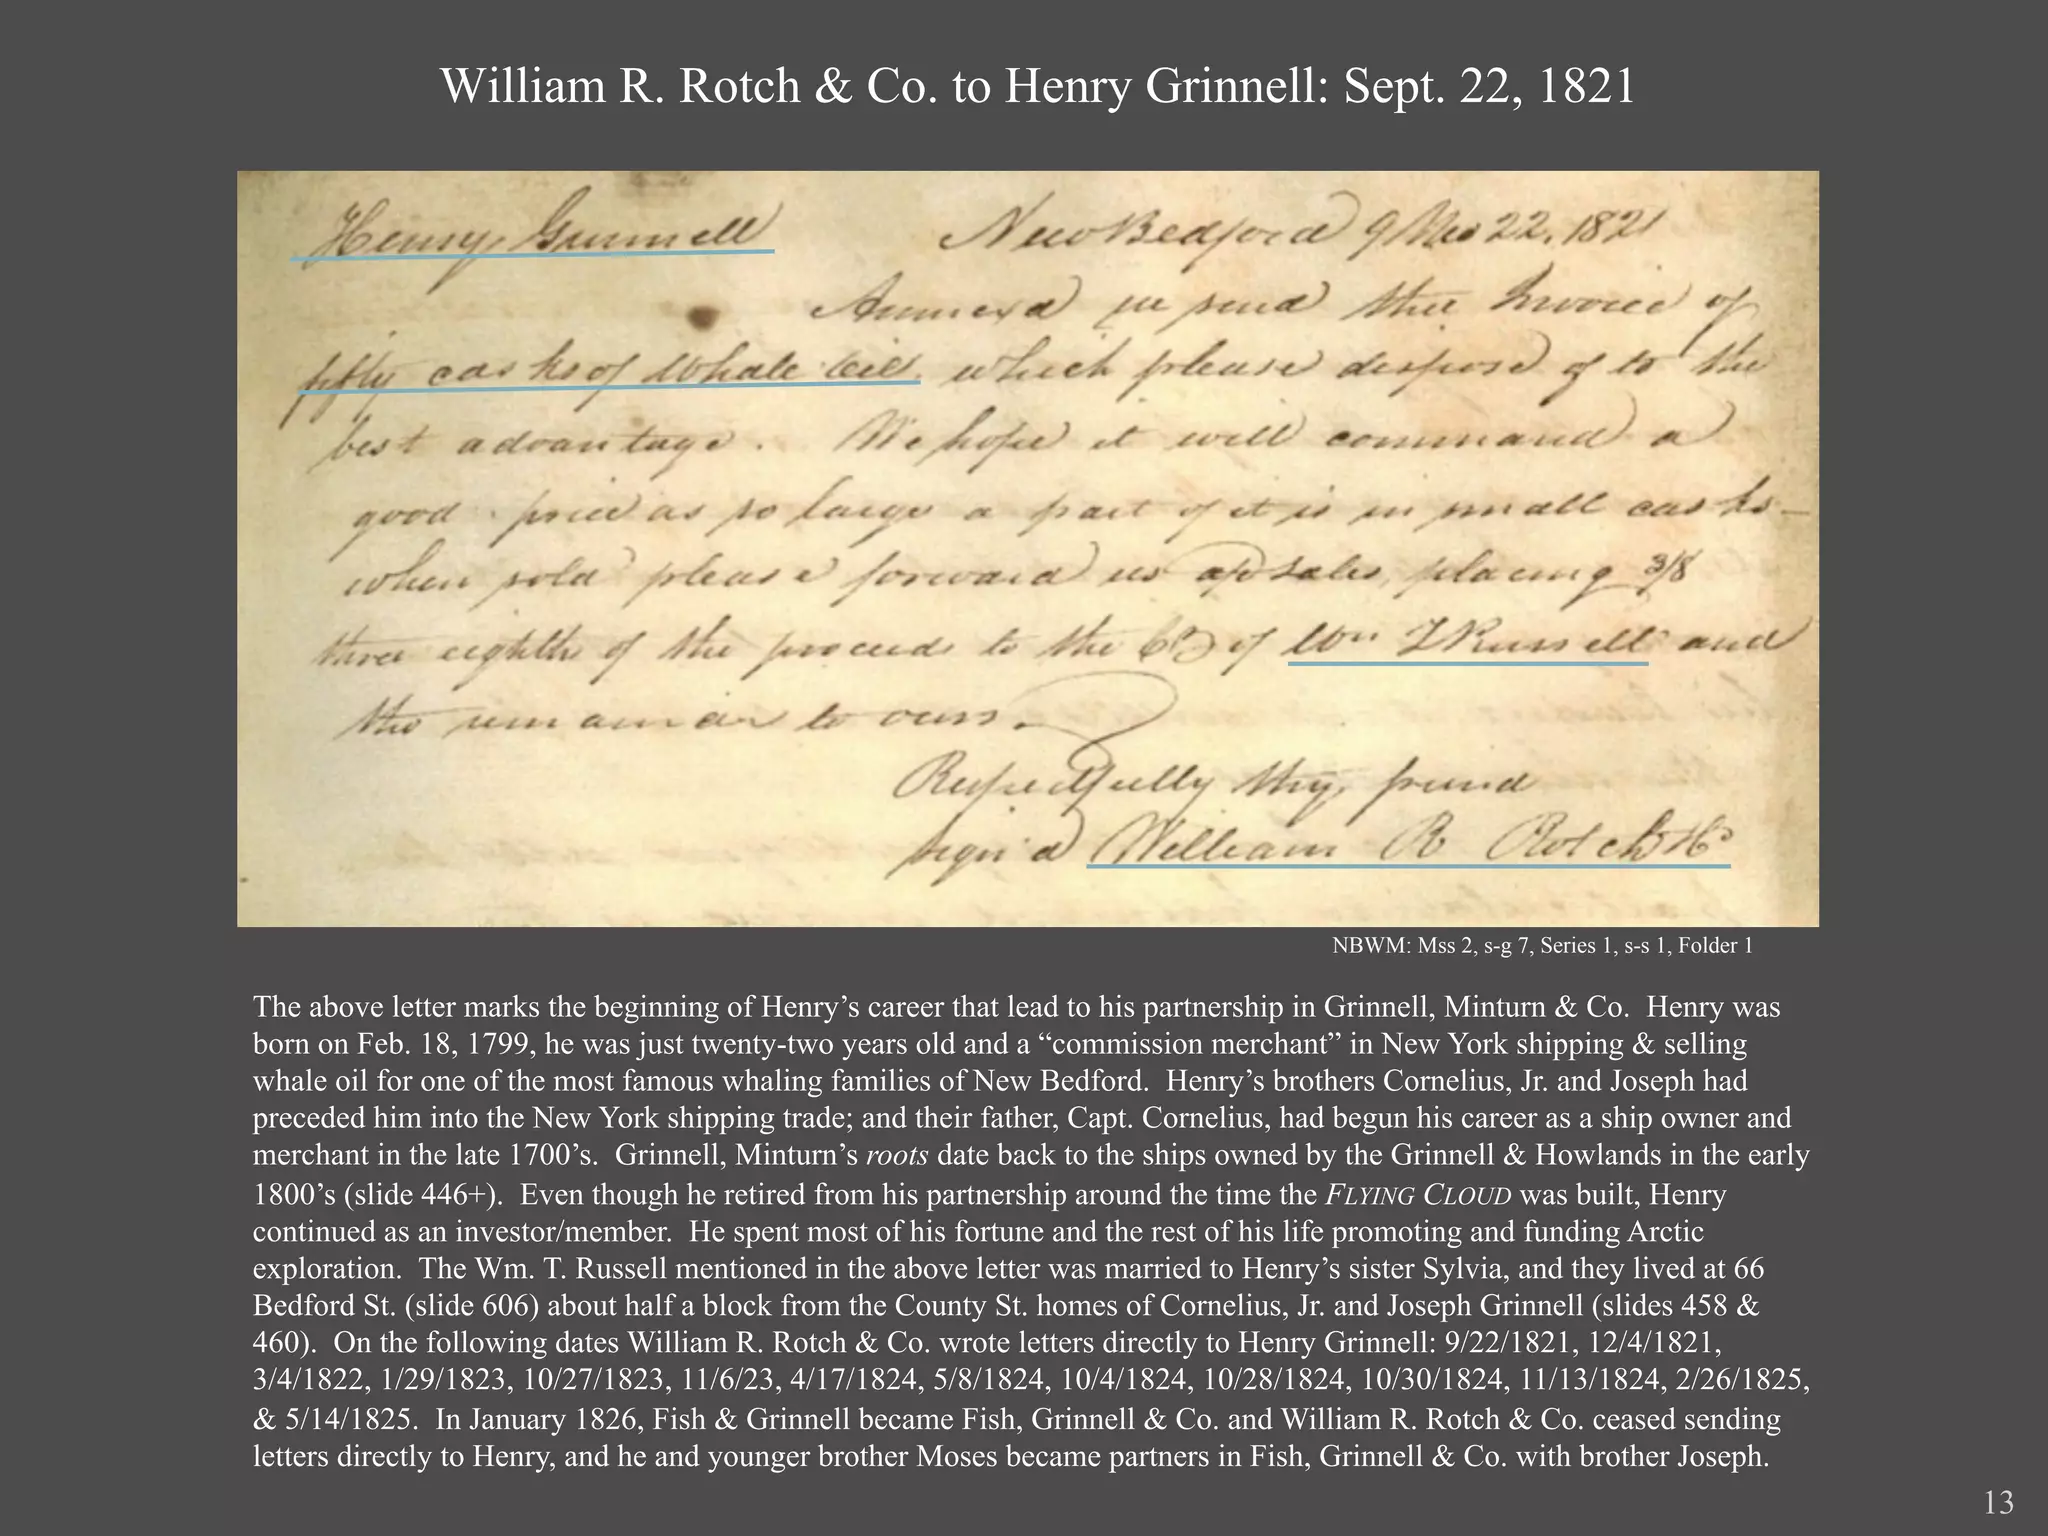 William R. Rotch & Co. to Henry Grinnell: Sept. 22, 1821
Henry Grinnell New Bedford 9 Mo 22, 1821
Annexd we send thee Invoice of
fifty casks of Whale Oil, which please dispose of to the
best advantage. We hope it will command a
good price as so large a part of it is in small casks –
when sold please forward us a/c sales, placing 3/8
three eighths of the proceeds to the Cr of Wm T Russell and
the remainder to ours.
Respectfully thy friend
sign'd William R Rotch & Co
NBWM: Mss 2, s-g 7, Series 1, s-s 1, Folder 1
The above letter marks the beginning of Henry’s career that lead to his partnership in Grinnell, Minturn & Co. Henry was
born on Feb. 18, 1799, he was just twenty-two years old and a “commission merchant” in New York shipping & selling
whale oil for one of the most famous whaling families of New Bedford. Henry’s brothers Cornelius, Jr. and Joseph had
preceded him into the New York shipping trade; and their father, Capt. Cornelius, had begun his career as a ship owner and
merchant in the late 1700’s. Grinnell, Minturn’s roots date back to the ships owned by the Grinnell & Howlands in the early
1800’s (slide 446+). Even though he retired from his partnership around the time the FLYING CLOUD was built, Henry
continued as an investor/member. He spent most of his fortune and the rest of his life promoting and funding Arctic
exploration. The Wm. T. Russell mentioned in the above letter was married to Henry’s sister Sylvia, and they lived at 66
Bedford St. (slide 606) about half a block from the County St. homes of Cornelius, Jr. and Joseph Grinnell (slides 458 &
460). On the following dates William R. Rotch & Co. wrote letters directly to Henry Grinnell: 9/22/1821, 12/4/1821,
3/4/1822, 1/29/1823, 10/27/1823, 11/6/23, 4/17/1824, 5/8/1824, 10/4/1824, 10/28/1824, 10/30/1824, 11/13/1824, 2/26/1825,
& 5/14/1825. In January 1826, Fish & Grinnell became Fish, Grinnell & Co. and William R. Rotch & Co. ceased sending
letters directly to Henry, and he and younger brother Moses became partners in Fish, Grinnell & Co. with brother Joseph.
13